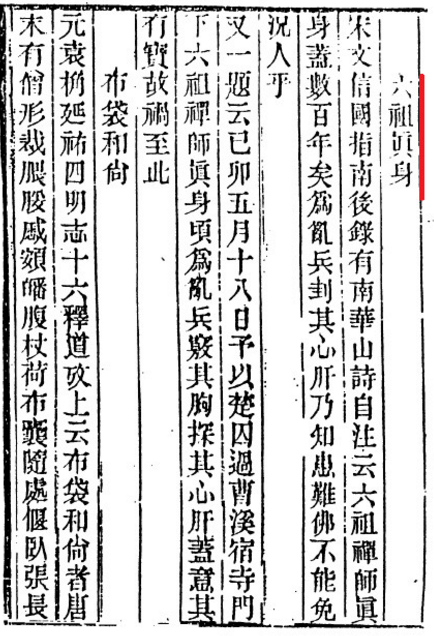 六祖眞身
宋文信國指南後錄有南華山詩自注云六祖禪師眞
身蓋數百年矣爲亂兵刲其心肝乃知患難佛不能免
況人乎
又一題云已卯五月十八日予以楚囚過曹溪宿寺門
下六祖禪師眞身頃爲亂兵竅其胸探其心肝蓋意其
有寶故禍至此
布袋和尙
元袁桷延祐四明志十六釋道攷上云布袋和尙者唐
末有僧形裁腲脮蹙頞皤腹杖荷布囊隨處偃臥張長